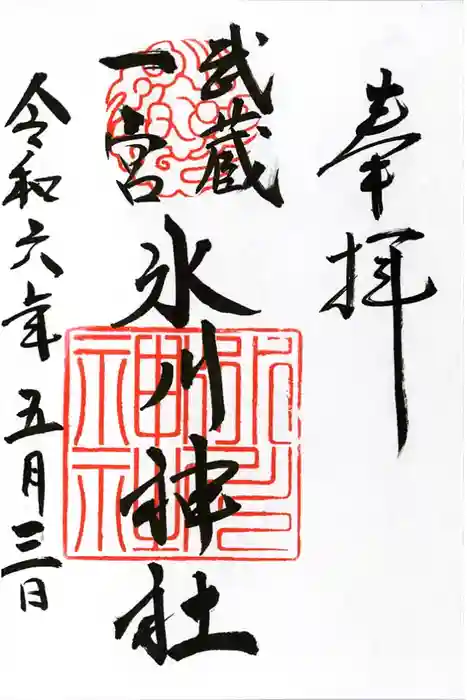 奉拝
武蔵
一宮
氷川神社
令和六年五月三日
氷川神社